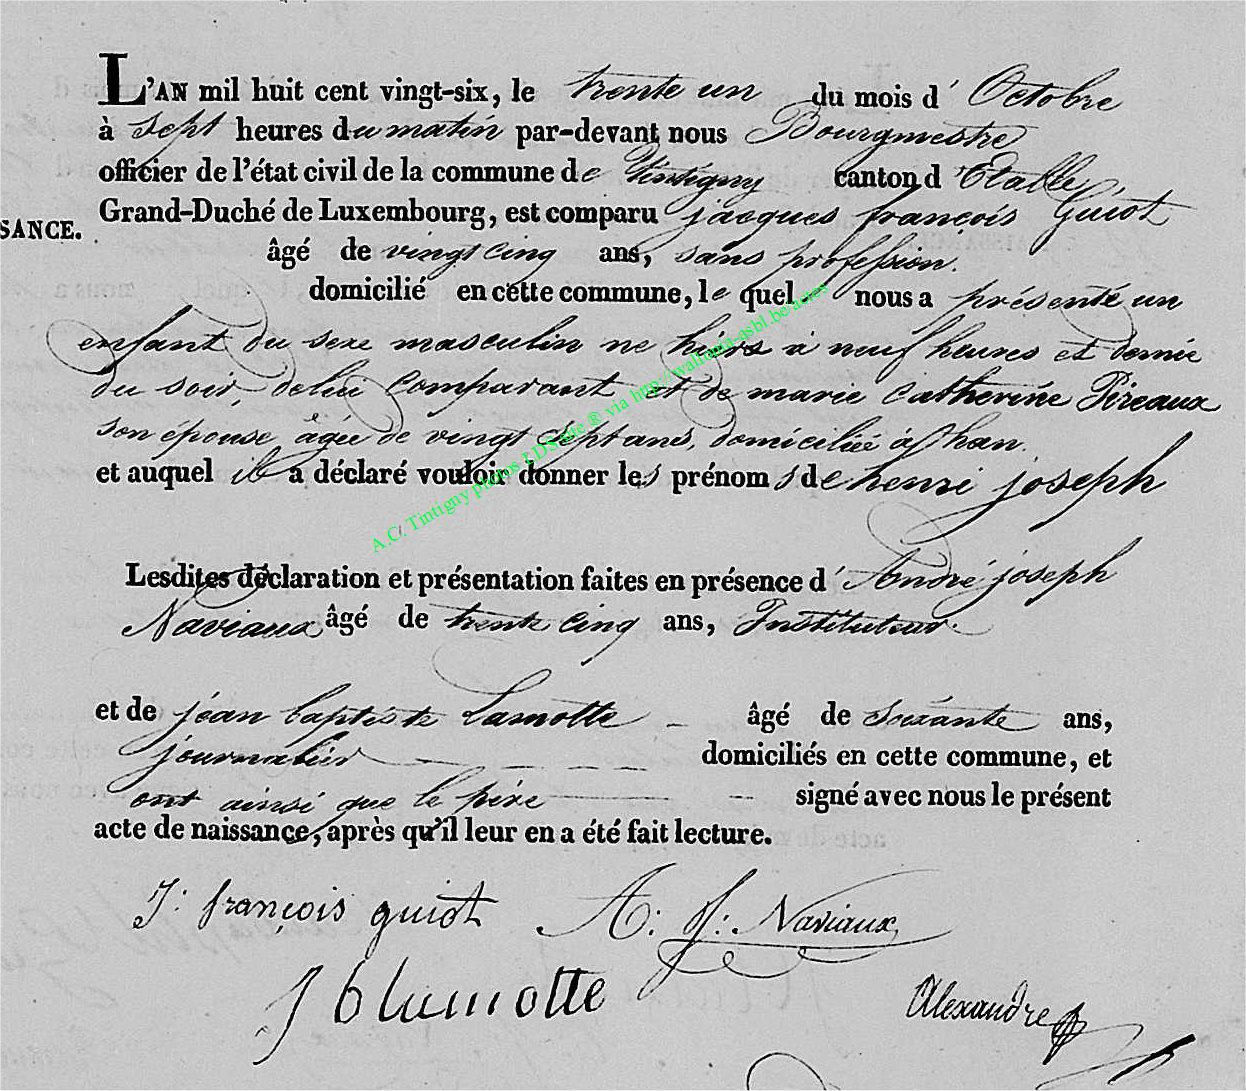 L'AN mil huit cent vingt-six, le trente un du mois d' Octobre
à sept heures du matin par-devant nous Bourgmestre
officier de l'état civil de la commune de Tintigny canton d'Etalle
Grand-Duché de Luxembourg, est comparu jacques françois Guiot
SANCE.
âgé de vingt cinq ans, sans profession.
domicilié en cette commune, le quel nous a présenté un
enfant du sexe masculin né hier à neuf heures et demie
du soir, de lui comparant et de marie Catherine Pireaux
son épouse âgée de vingt sept ans, domiciliée à han.
et auquel il a déclaré vouloir donner les prénoms de henri joseph
A.C. Tintigny photos LDS site ® via http://wallonia-asbl.be/actes
Lesdites déclaration et présentation faites en présence d'André joseph
Naviaux âgé de trente cinq ans, Instituteur.
et de jean baptiste Lamotte - âgé de soixante ans,
journalier - - - - domiciliés en cette commune, et
ont ainsi que le père - signé avec nous le présent
acte de naissance, après qu'il leur en a été fait lecture.
J: françois guiot A: J: Naviaux
J b lamotte
Alexandre